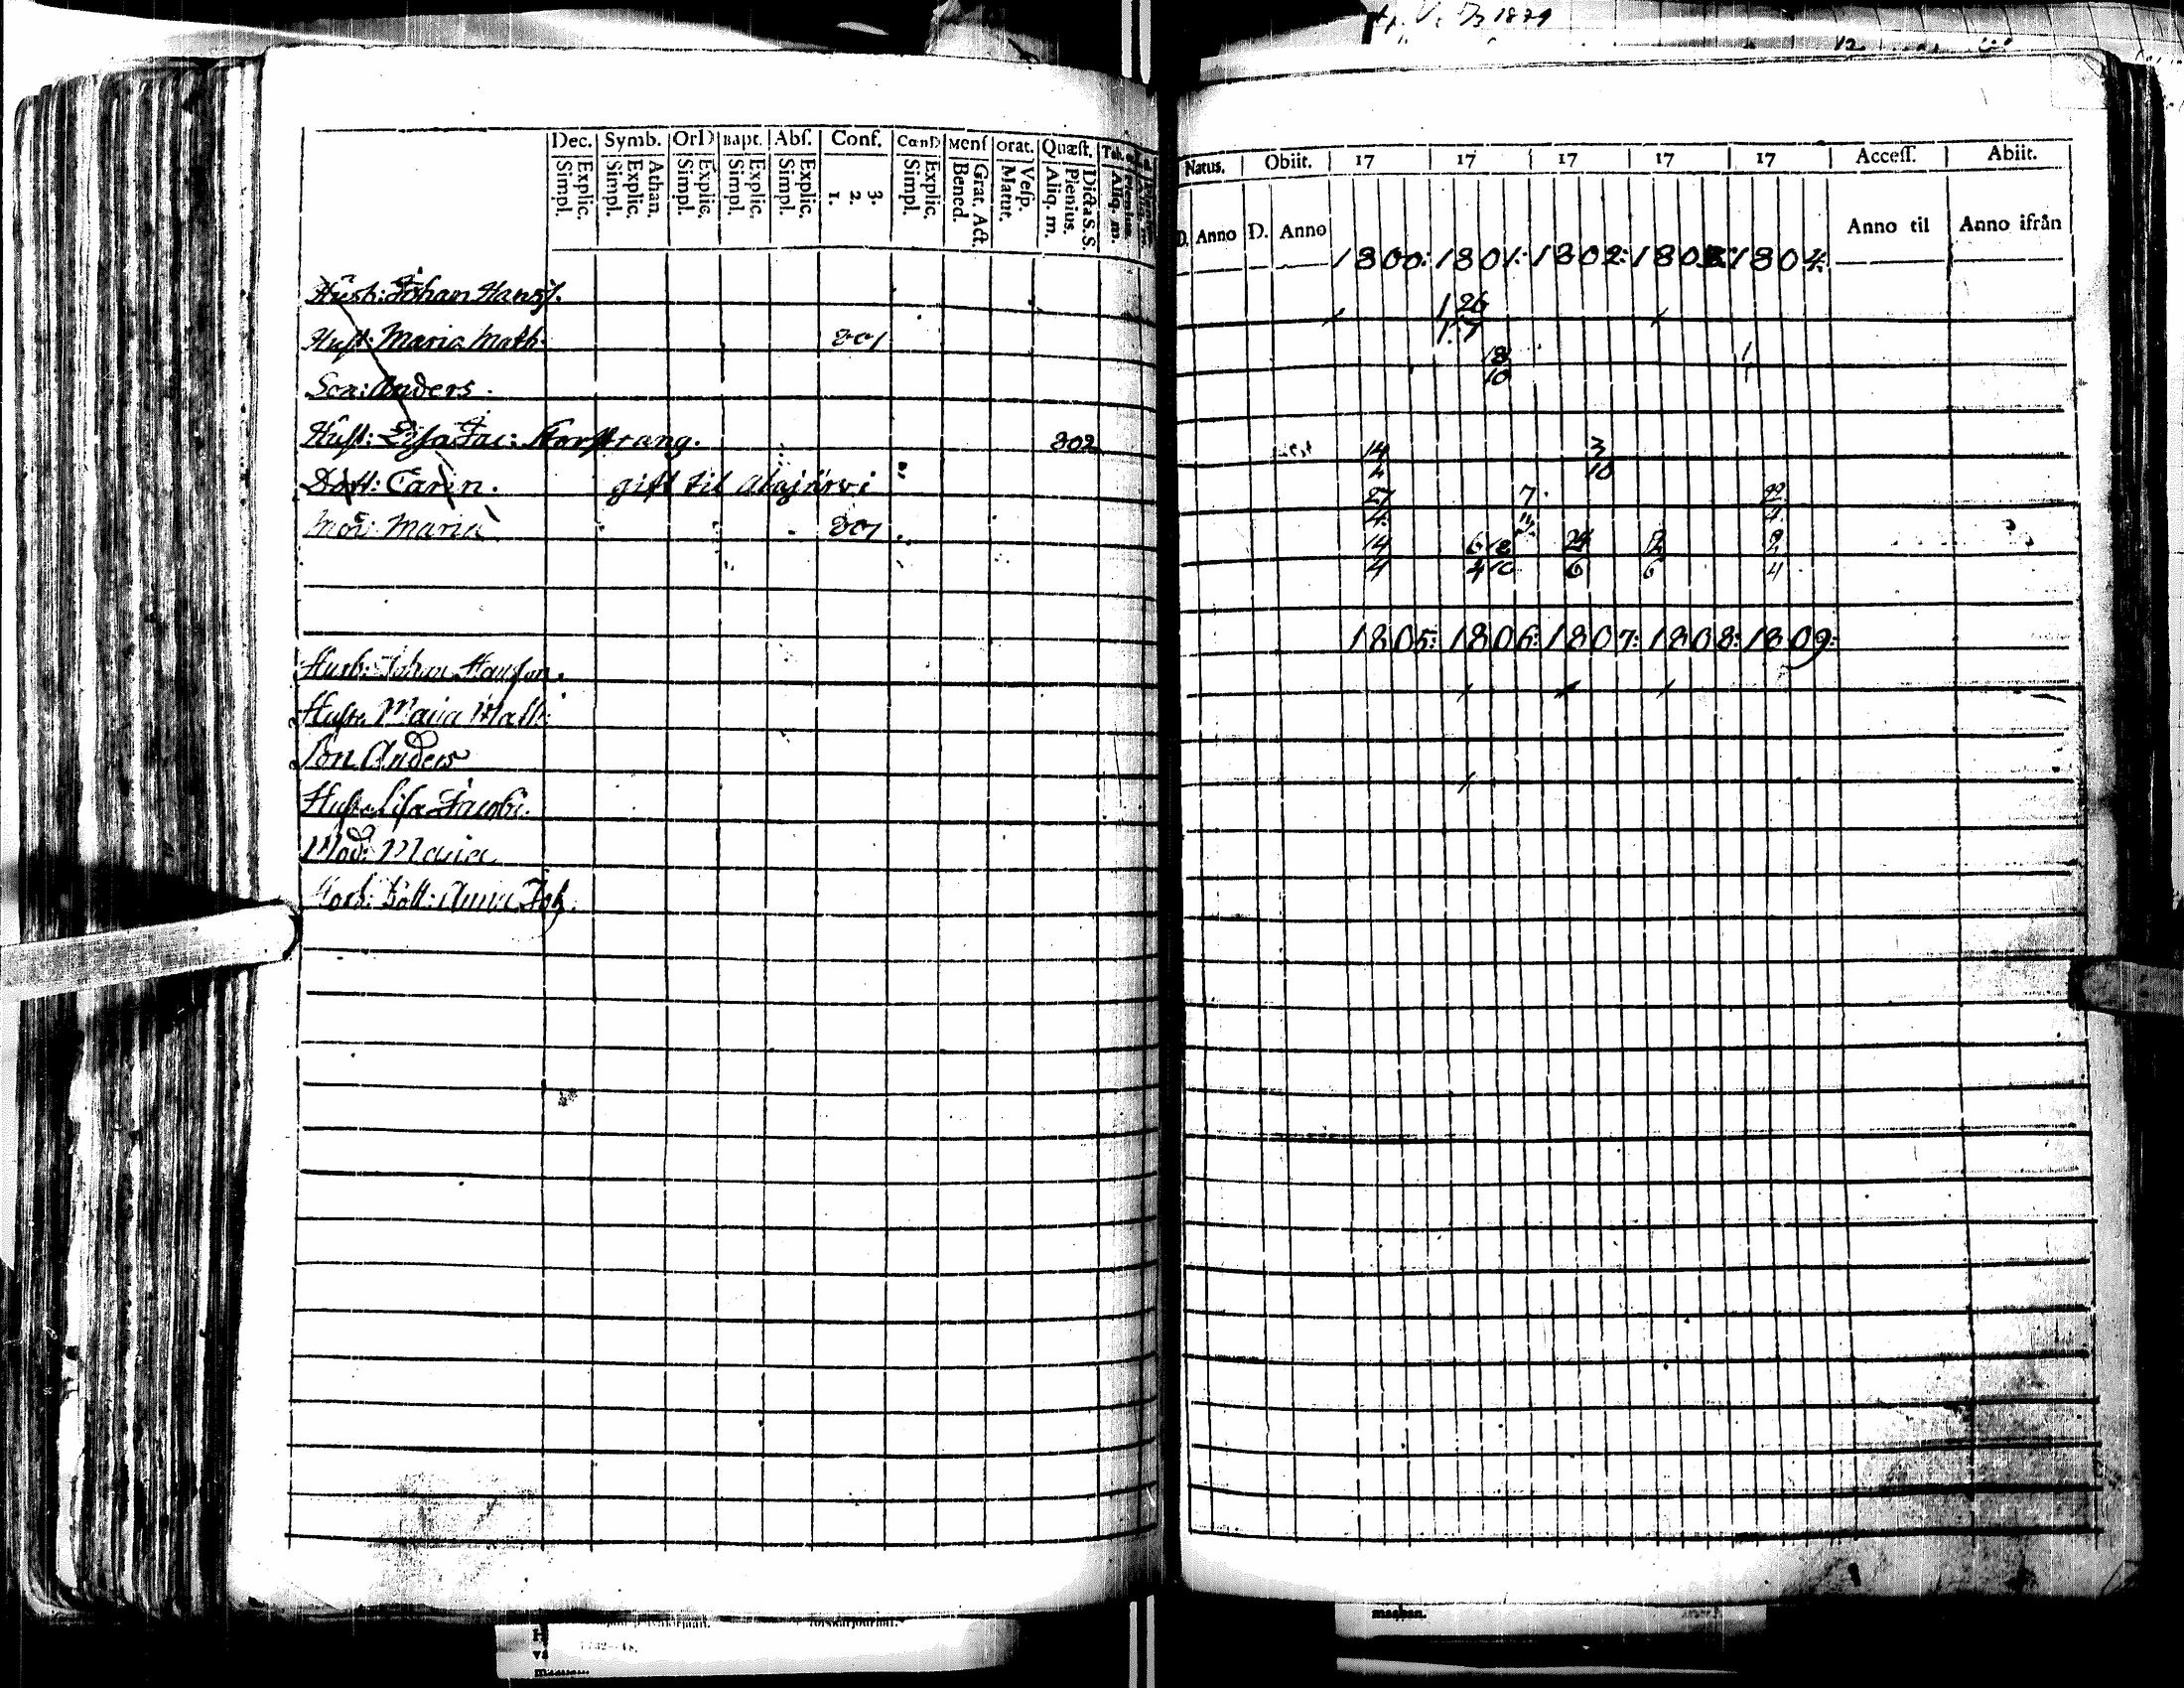 Dec. Symb. OrD Bapt. Abſ. Conf. CœnD Menſ Orat. Quæſt.
Simpl. Explic. Simpl. Explic. Athan. Simpl. Explic. Simpl. Explic. Simpl. Explic. 1. 2. 3. Simpl. Explic. Bened. Grat. Act. Matut. Veſp. Aliq. m. Plenius. Dicta S.S. Aliq. m.
Husb: Johan Hansſ.
Huſt: Maria Math. 801
Son: Anders.
Huſt: Liſa Jac: Norſtrang. 802
Dott: Carin. gift til Alajärvi
Mod: Maria 801
Husb: Johan Hanſon.
Huſtr Maria Matt:
Son Anders
Huſtr Liſa Jacobs.
Mod: Maria
Dott: Anna Joh.
Natus. Obiit. 17 17 17 17 17 Acceſſ. Abiit.
D. Anno D. Anno Anno til Anno ifrån
1800: 1801: 1802: 1803: 1804.
1 26
1 7
18 1
10 1
14 3
4 10
27 7 22
4 4
14 6 12 24 2
4 4 10 6 6 4
1805: 1806: 1807: 1808: 1809: